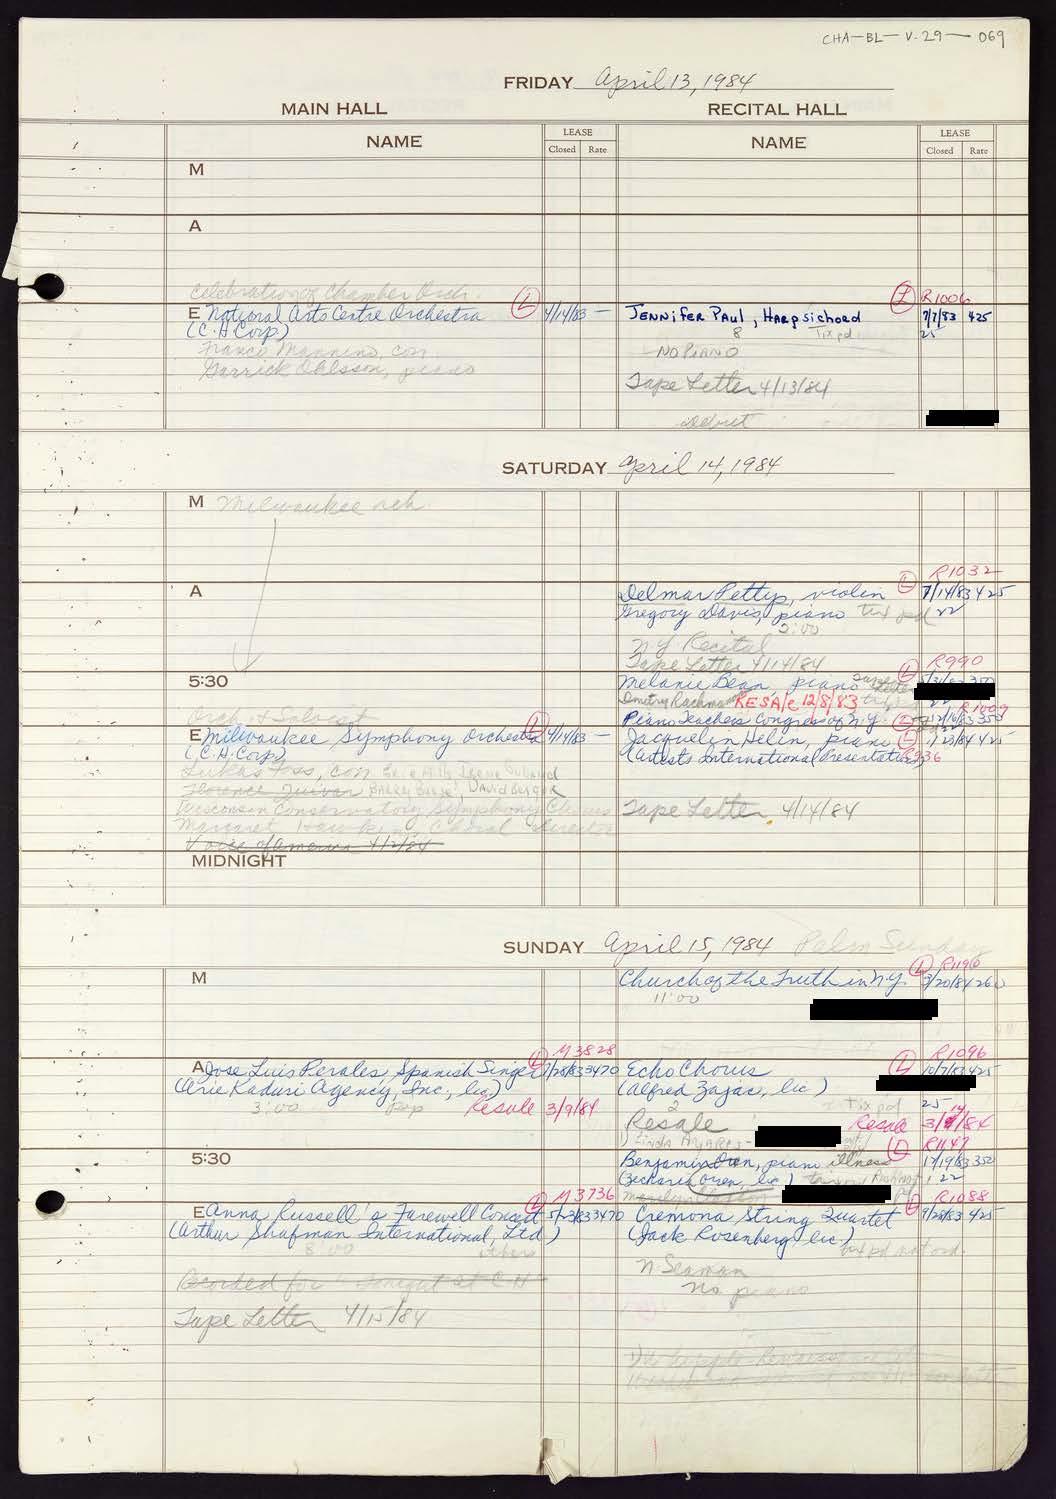 CHA-BL-V.29-069
FRIDAY April 13, 1984
MAIN HALL RECITAL HALL
NAME LEASE Closed Rate NAME LEASE Closed Rate
M
A
Celebration of Chamber Orch.
E National Arts Centre Orchestra L 4/14/83 —
(C.H. Corp)
Franco Mannino, con.
Garrick Ohlsson, piano
L R1006
Jennifer Paul, Harpsichord 7/7/83 425
8 Tix pd 25
NO PIANO
Tape Letter 4/13/84
debut
SATURDAY April 14, 1984
M Milwaukee reh.
A
5:30
Orch. & Soloist
E Milwaukee Symphony Orchestra L 4/14/83 —
(C.H. Corp)
Lukas Foss, con.
Florence Quivar David Berger
Wisconsin Conservatory Symphony Chorus
Margaret Hawkins, Choral Director
Voice of America 4/12/84
MIDNIGHT
R1032
Delmar Pettys, violin L 7/14/83 425
Gregory Davis, piano tix pd 22
2:00
NY Recital
Tape Letter 4/14/84
L R990
Melanie Bean, piano 350
RESALE 12/8/83
R1009
Piano Teachers Congress of N.Y. L
Jacquelin Helin, piano L 1/23/84 425
(Artists International Presentations)
Tape Letter 4/14/84
SUNDAY April 15, 1984 Palm Sunday
M
L R1190
Church of the Truth in N.Y. 3/20/84 260
11:00
L M3828
A Jose Luis Perales, Spanish Singer 7/28/83 3470
(Arie Kaduri Agency, Inc., lic)
3:00 pop Resale 3/9/84
R1096
Echo Chorus L 10/7/83 425
(Alfred Zajac, lic)
2 Tix pd 25
Resale Resale
Linda
5:30
L R1147
Benjamin Oren, piano illness 350
(Zecharia Oren, lic) 22
L M3736
E Anna Russell's Farewell Concert 3470
(Arthur Shafman International, Ltd)
8:00 others
Recorded for "Tonight at C.H."
Tape Letter 4/15/84
R1088
Cremona String Quartet L 9/28/83 425
(Jack Rosenberg, lic)
tix pd not ord.
N. Seaman
No piano